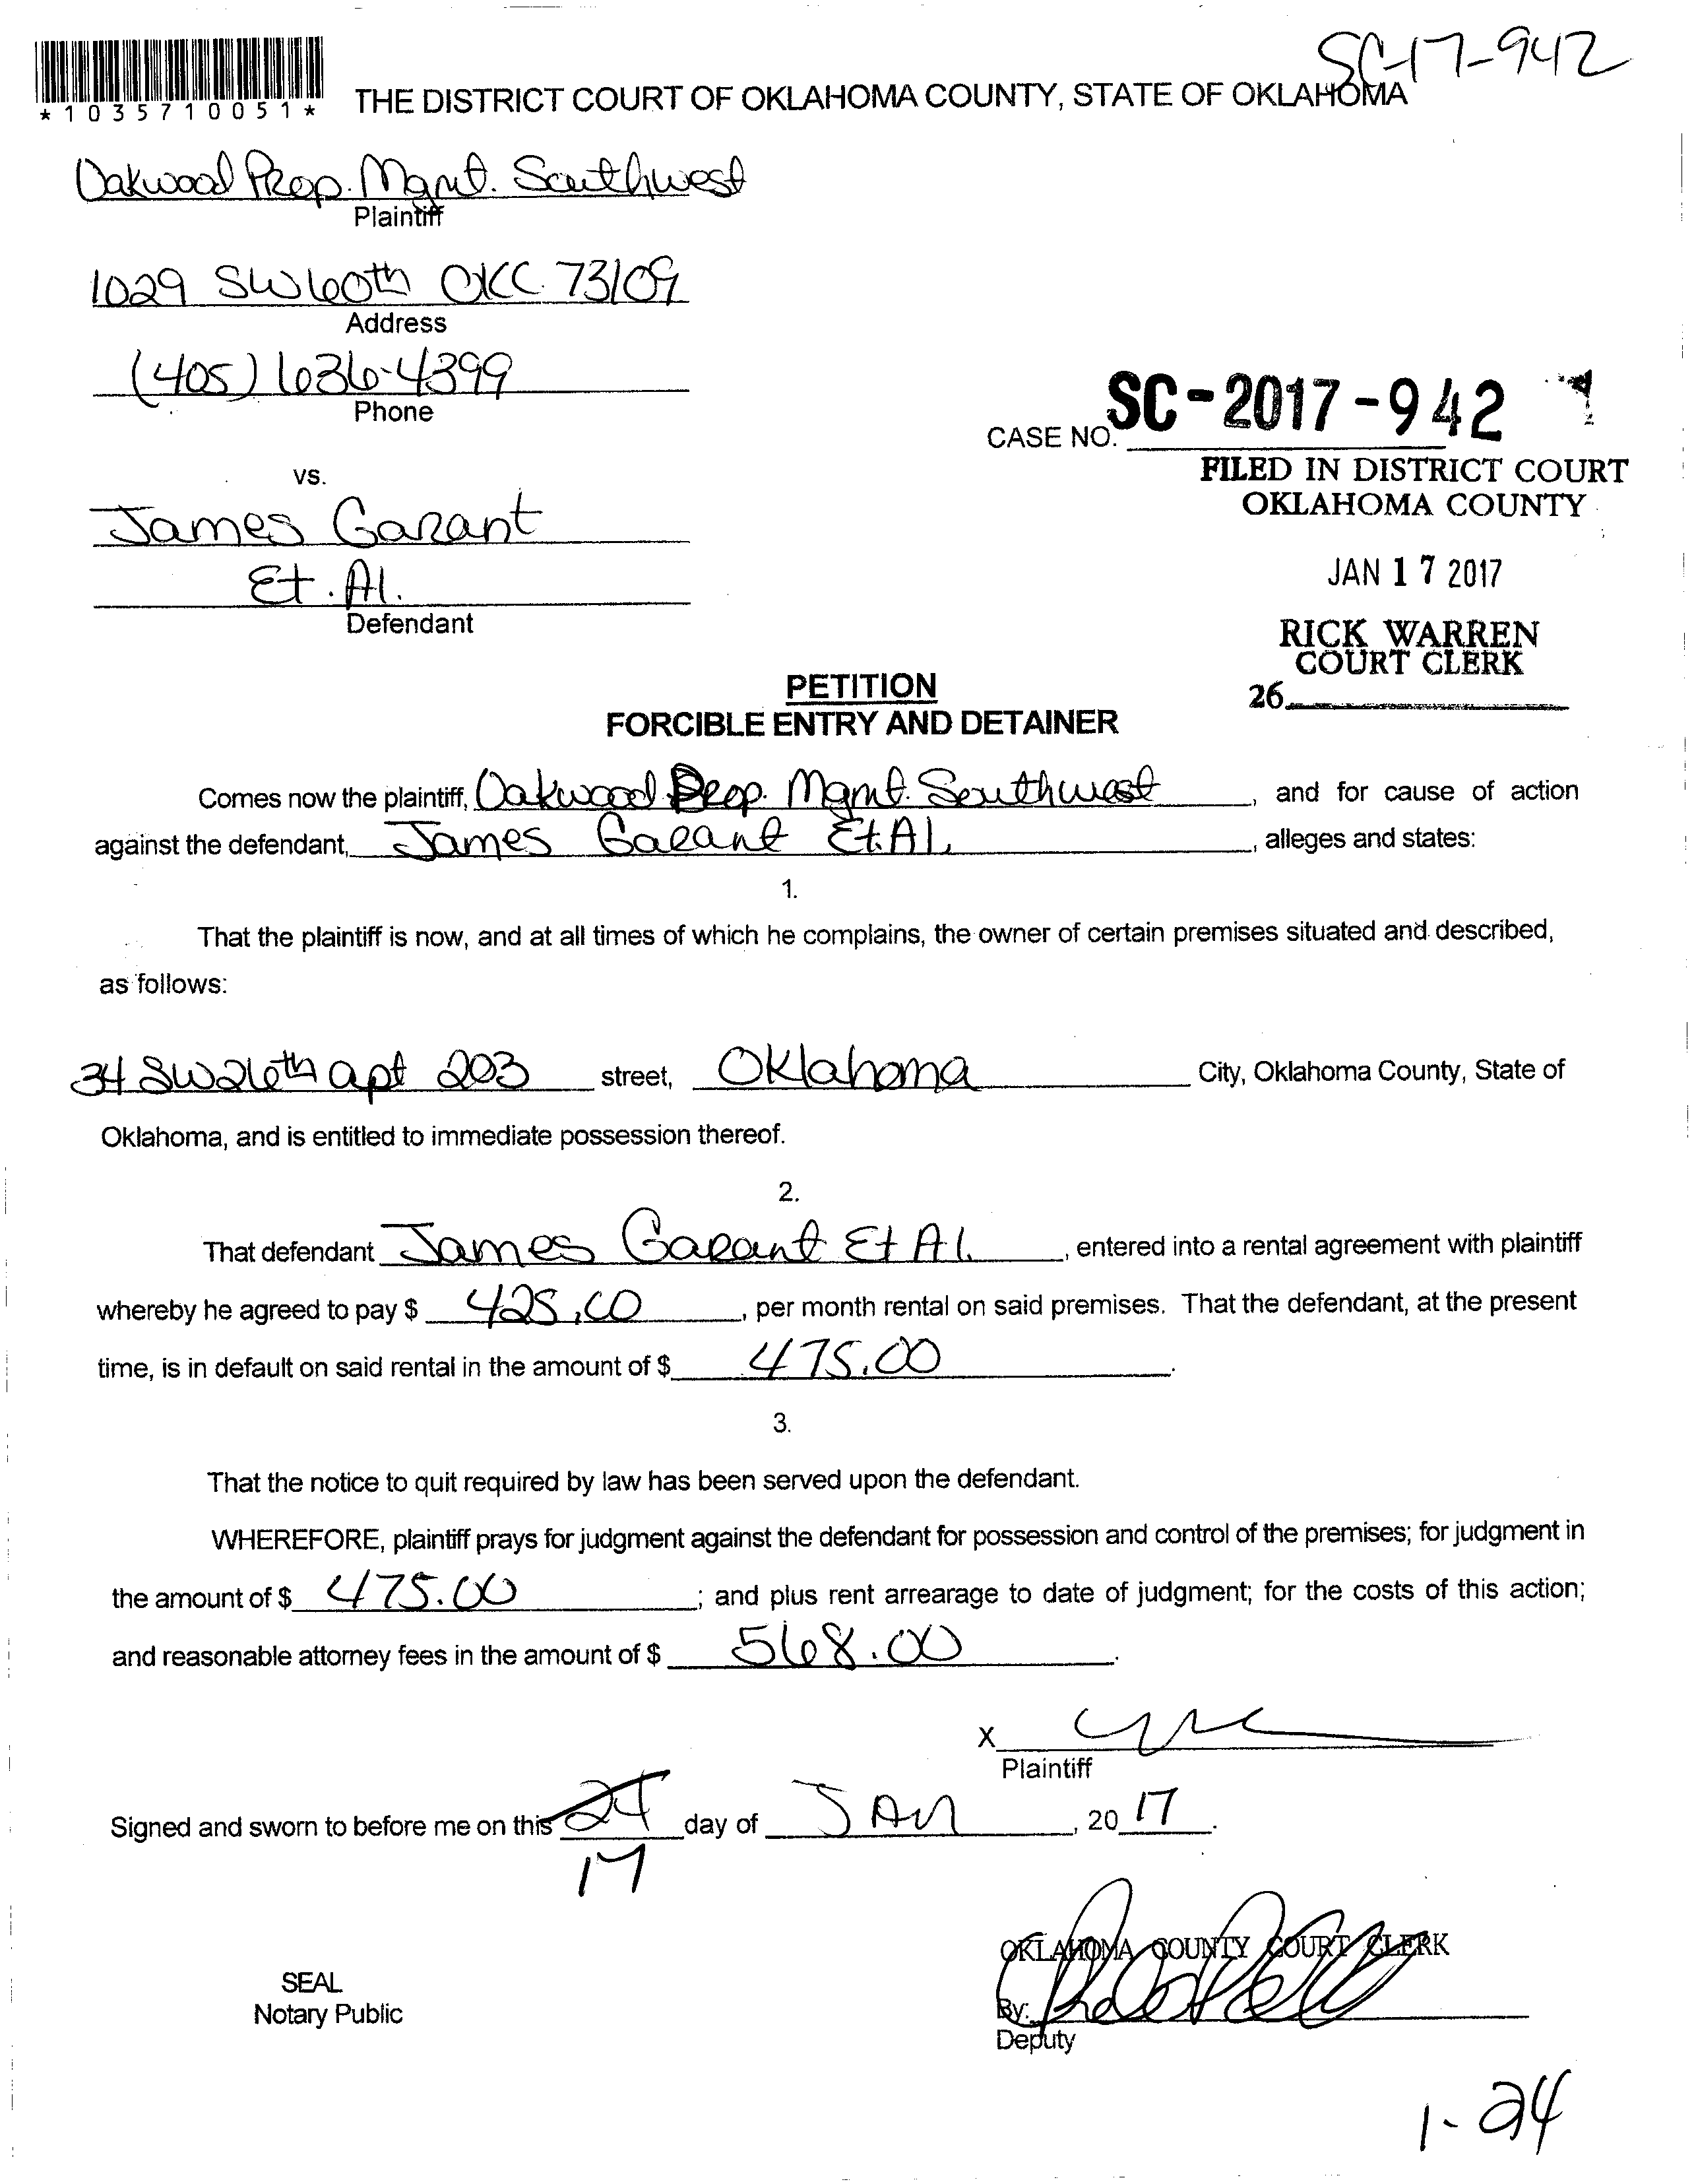 SC-17-942
*1035710051*
THE DISTRICT COURT OF OKLAHOMA COUNTY, STATE OF OKLAHOMA
Oakwood Prop. Mgmt. Southwest
Plaintiff
1029 SW 60th OKC. 73109
Address
(405) 636-4399
Phone
CASE NO. SC-2017-942
vs.
FILED IN DISTRICT COURT
OKLAHOMA COUNTY
James Garant
Et. Al.
Defendant
JAN 17 2017
RICK WARREN
COURT CLERK
26
PETITION
FORCIBLE ENTRY AND DETAINER
Comes now the plaintiff, Oakwood Prop. Mgmt. Southwest, and for cause of action
against the defendant, James Garant Et. Al., alleges and states:
1.
That the plaintiff is now, and at all times of which he complains, the owner of certain premises situated and described,
as follows:
34 SW 26th apt 203 street, Oklahoma City, Oklahoma County, State of
Oklahoma, and is entitled to immediate possession thereof.
2.
That defendant James Garant Et Al., entered into a rental agreement with plaintiff
whereby he agreed to pay $ 425.00, per month rental on said premises. That the defendant, at the present
time, is in default on said rental in the amount of $ 475.00.
3.
That the notice to quit required by law has been served upon the defendant.
WHEREFORE, plaintiff prays for judgment against the defendant for possession and control of the premises; for judgment in
the amount of $ 475.00; and plus rent arrearage to date of judgment; for the costs of this action;
and reasonable attorney fees in the amount of $ 568.00.
X
Plaintiff
Signed and sworn to before me on this 24 day of JAN, 2017.
17
OKLAHOMA COUNTY COURT CLERK
SEAL
Notary Public
By:
Deputy
1-24